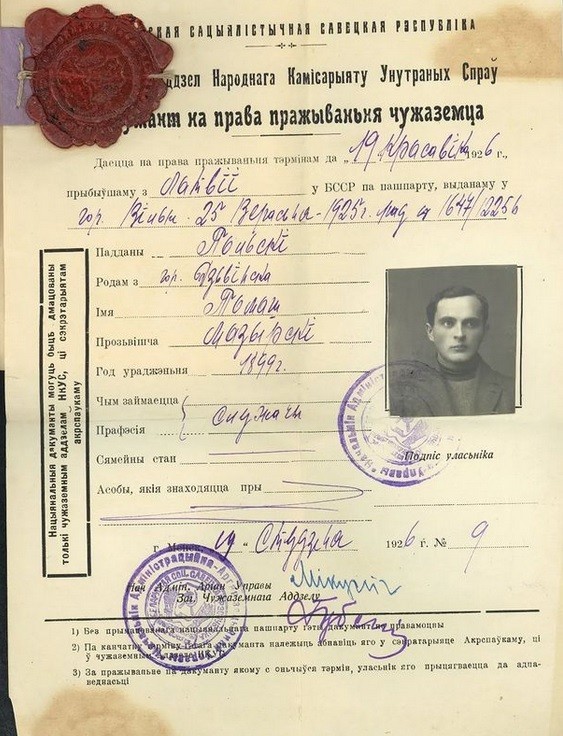 СКАЯ САЦЫЯЛІСТЫЧНАЯ САВЕЦКАЯ РЭСПУБЛІКА
ддзел Народнага Камісарыяту Унутраных Спраў
умант на права пражываньня чужаземца
Даецца на права пражываньня тэрмінам да „19 Красавіка 1926 г.,
прыбыўшаму з Латвіі у БССР па пашпарту, выданаму у
гор. 25 Верасьня 1925 г. 1647/2256
Падданы Польскі
Родам з гор. Дзьвінска
Імя Томаш
Прозьвішча
Год ураджэньня 1899 г.
Чым займаецца
Прафэсія Служачы
Сямейны стан
Асобы, якія знаходяцца пры
Подпіс уласьніка
г. Менск, 19 „ Студзеня 1926 г. № 9
Адмін. Арган Управы
Заг. Чужаземнага Аддзелу
1) Без нацыянальнага пашпарту гэты дакумант неправамоцны
2) Па канчатку тэрміну дакуманта належыць абнавіць яго у сэкратарыяце Акрспаўкаму, ці
ў чужаземным НКУС.
3) За пражываньне па дакуманту якому с оньчыўся тэрмін, уласьнік яго прыцягваецца да адпа-
веднасьці
Нацыянальныя дакуманты могуць быць дмацованы
толькі чужаземным аддзелам НкУС, ці сэкрэтарыятам
акрспаўкаму